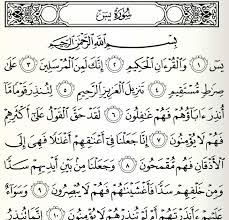 سُورَةُ يسٓ
بِسْمِ ٱللَّهِ ٱلرَّحْمَٰنِ ٱلرَّحِيمِ
يسٓ ١ وَٱلْقُرْءَانِ ٱلْحَكِيمِ ٢ إِنَّكَ لَمِنَ ٱلْمُرْسَلِينَ ٣ عَلَىٰ
صِرَٰطٍ مُّسْتَقِيمٍ ٤ تَنزِيلَ ٱلْعَزِيزِ ٱلرَّحِيمِ ٥ لِتُنذِرَ قَوْمًا مَّآ
أُنذِرَ ءَابَآؤُهُمْ فَهُمْ غَٰفِلُونَ ٦ لَقَدْ حَقَّ ٱلْقَوْلُ عَلَىٰٓ أَكْثَرِهِمْ
فَهُمْ لَا يُؤْمِنُونَ ٧ إِنَّا جَعَلْنَا فِىٓ أَعْنَٰقِهِمْ أَغْلَٰلًا فَهِىَ إِلَى
ٱلْأَذْقَانِ فَهُم مُّقْمَحُونَ ٨ وَجَعَلْنَا مِنۢ بَيْنِ أَيْدِيهِمْ سَدًّا
وَمِنْ خَلْفِهِمْ سَدًّا فَأَغْشَيْنَٰهُمْ فَهُمْ لَا يُبْصِرُونَ ٩ وَسَوَآءٌ
عَلَيْهِمْ ءَأَنذَرْتَهُمْ أَمْ لَمْ تُنذِرْهُمْ لَا يُؤْمِنُونَ ١٠ إِنَّمَا تُنذِرُ